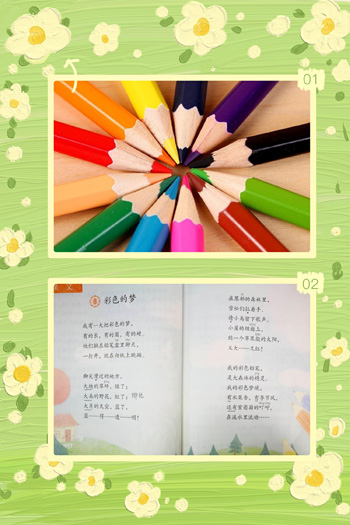 01
02
课文
8 彩色的梦
我有一大把彩色的梦，
有的长，有的圆，有的硬。
他们躺在铅笔盒里聊天，
一打开，就在白纸上跳蹦。
脚尖滑过的地方，
大块的草坪，绿了；
大朵的野花，红了；
大片的天空，蓝了，
蓝——得——透——明！
在葱郁的森林里，
雪松们拉着手，
请小鸟留下歌声。
小屋的烟囱上，
结一个苹果般的太阳，
又大——又红！
我的彩色铅笔，
是大森林的精灵。
我的彩色梦境，
有水果香，有季节风，
还有紫葡萄的叮咛，
在溪水里流动……